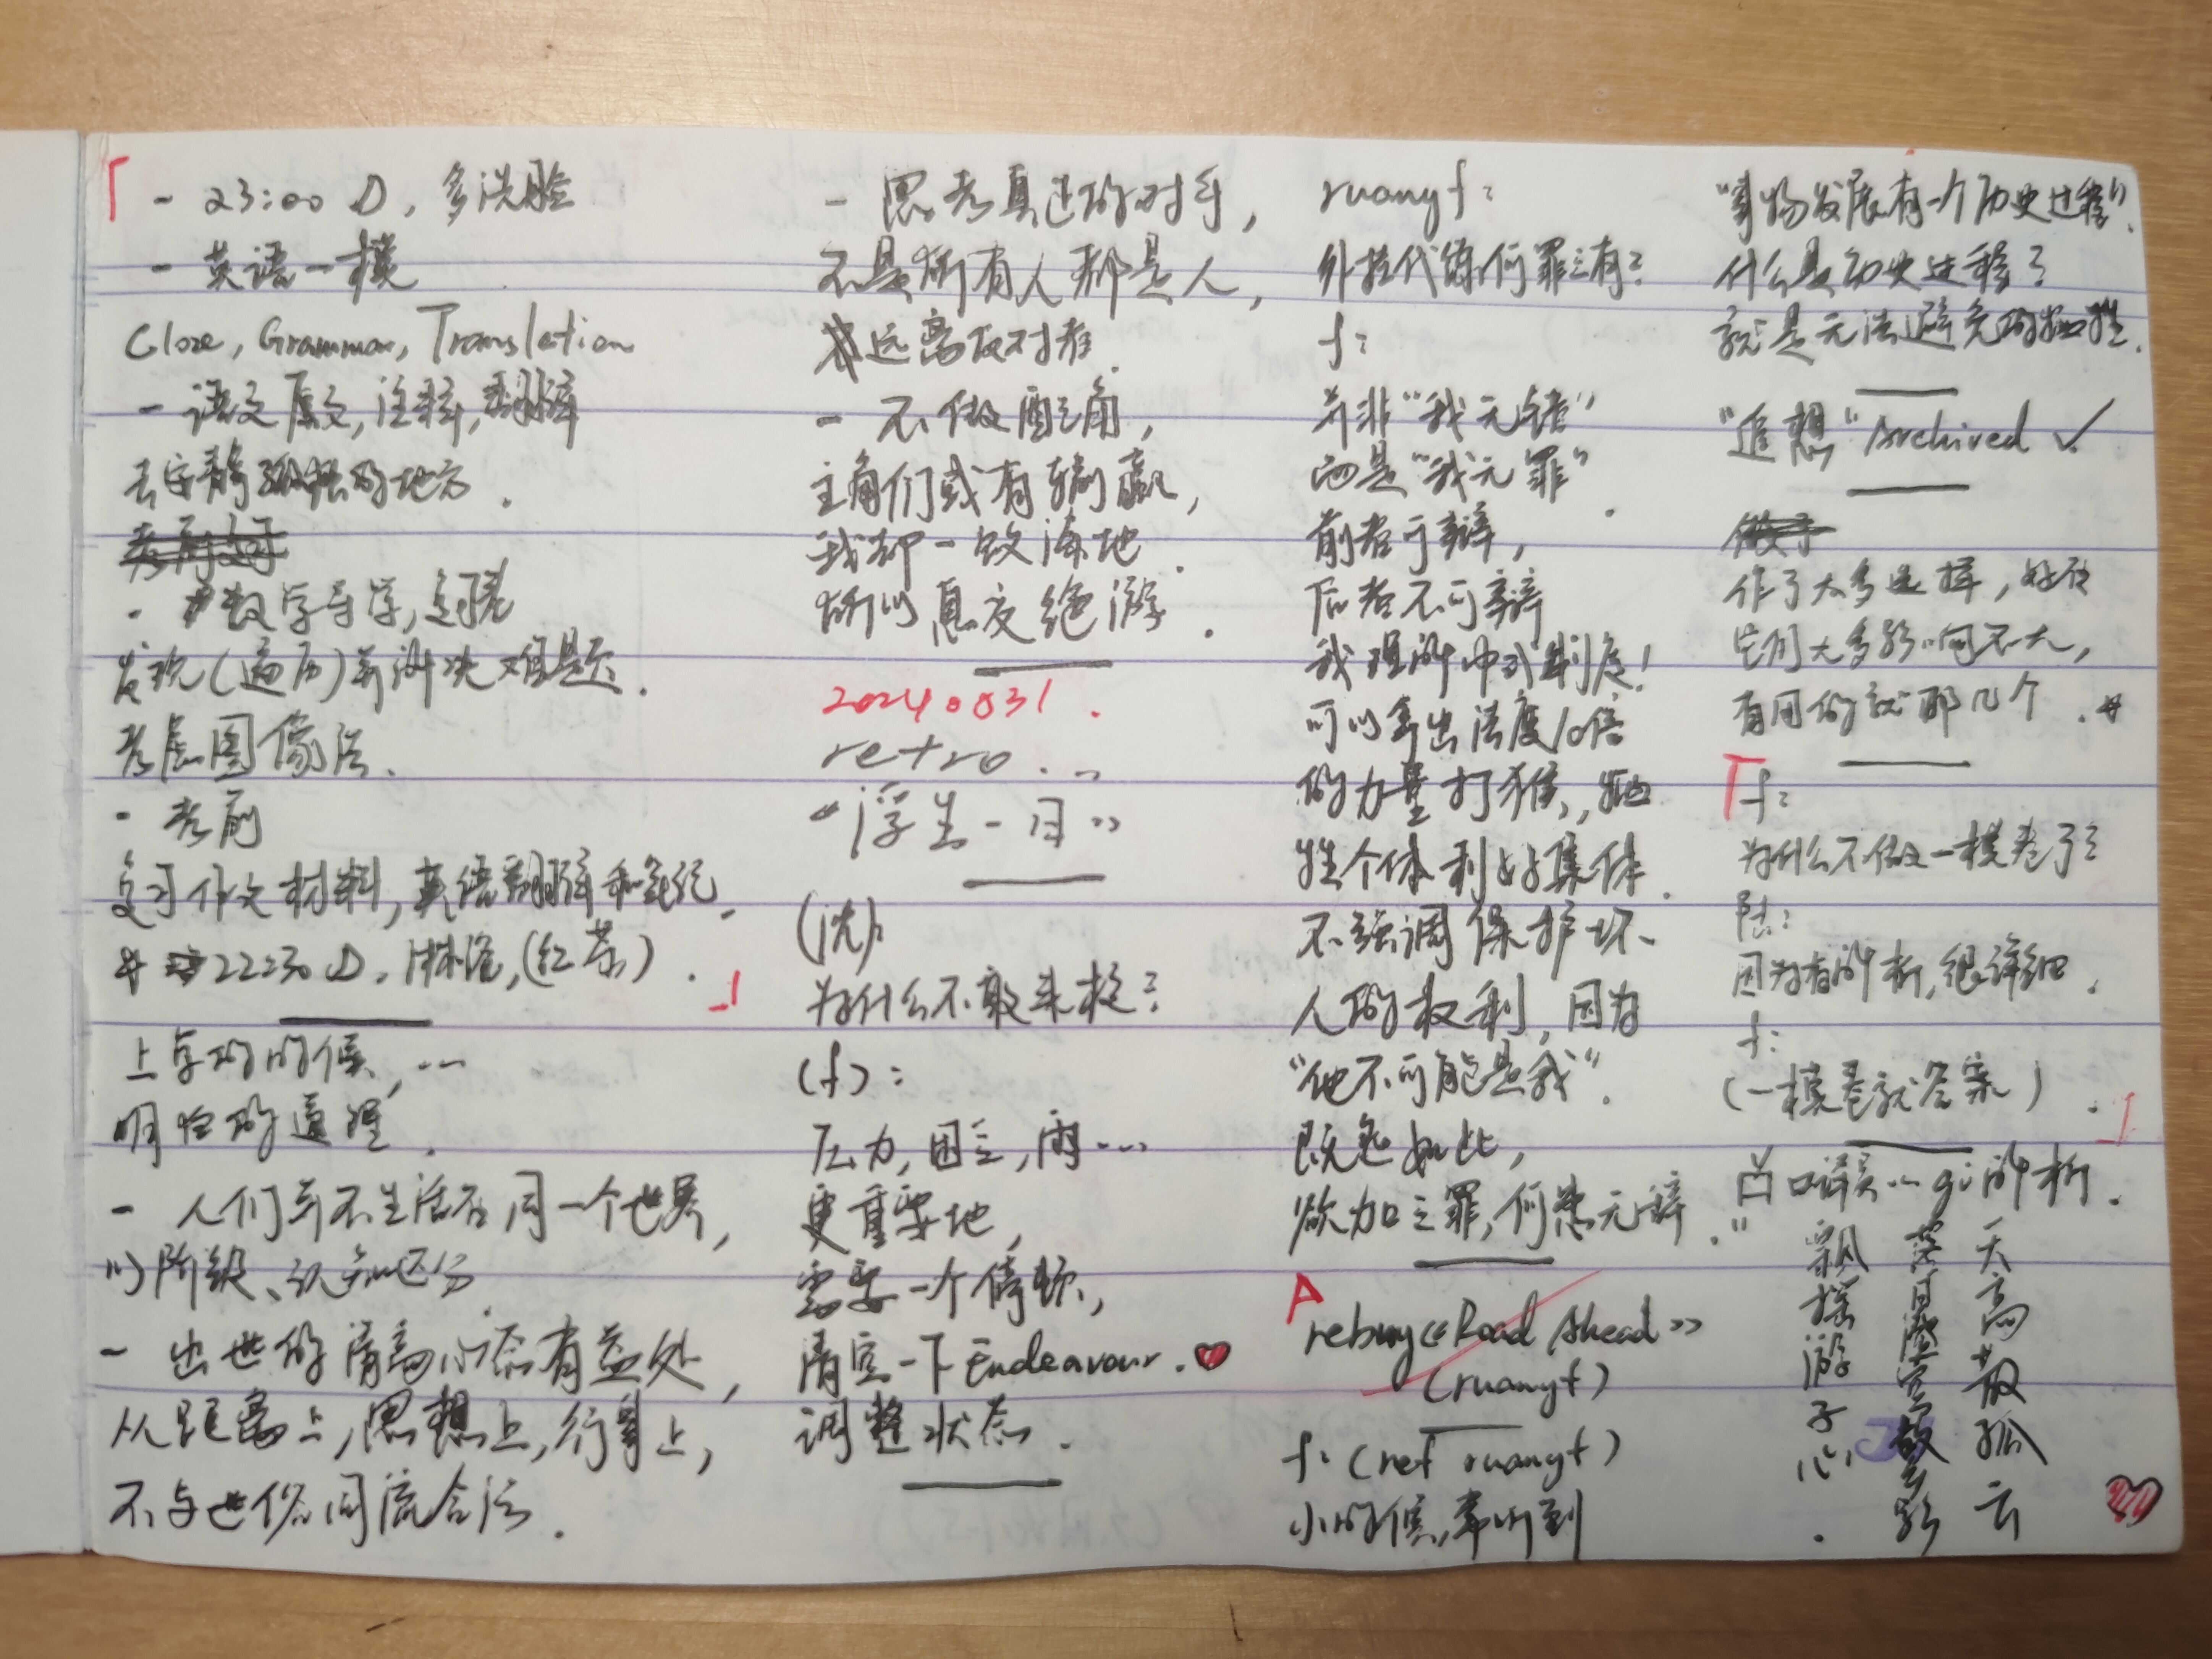 - 23:00 D, 多洗脸
- 英语一模
Cloze, Grammar, Translation
- 语文原文, 注释, 翻译
去安静孤独的地方.
- 数学导学, 
发现(遍历)并解决难题.
考虑图像法.
- 考前
复习作文材料, 英语翻译和
22:30 D, 淋浴, (红茶).
上学的时候, ...
明白的道理.
- 人们并不生活在同一个世界,
以阶级、认知区分.
- 出世的清高心态有益处,
从距离上, 思想上, 行事上,
不与世俗同流合污.
- 思考真正的对手,
不是所有人都是人,
远离反对者.
- 不做配角,
主角们或有输赢,
我却一败涂地.
所以息交绝游.
20240831.
retro...
“浮生一日”
(沈):
为什么不敢来校?
(f):
压力, 困乏, 雨...
更重要地,
需要一个停顿,
清空一下 Endeavour.
调整状态.
ruanyf:
外挂代练何罪之有?
f:
并非“我无错”
而是“我无罪”.
前者可辩,
后者不可辩
我理解中式制度!
可以拿出法度10倍
的力量打猴, 牺
牲个体利好集体.
不强调保护坏
人的权利, 因为
“他不可能是我”.
既然如此,
欲加之罪, 何患无辞."
rebuy《Road Ahead》
(ruanyf)
f: (ref ruanyf)
小时候, 常听到
“事物发展有一个历史过程”.
什么是历史过程?
就是无法避免的牺牲.
“追想” Archived ✓
作了太多选择, 好在
它们大多影响不大,
有用的就那几个.
f:
为什么不做一模卷了?
陆:
因为有解析, 很详细.
f:
(一模卷就答案).
解析.
天高散孤云
飘摇游子心.